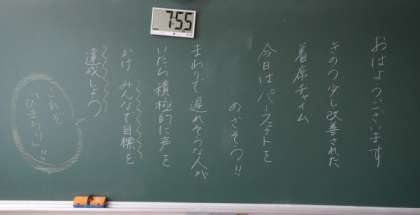 7:55
おはようございます
きのう少し改善された
着席チャイム
今日はパーフェクトを
めざそう!!
まわりで遅れそうな人が
いたら積極的に声を
かけ みんなで目標を
達成しよう
これぞ
"ひまわり"!!